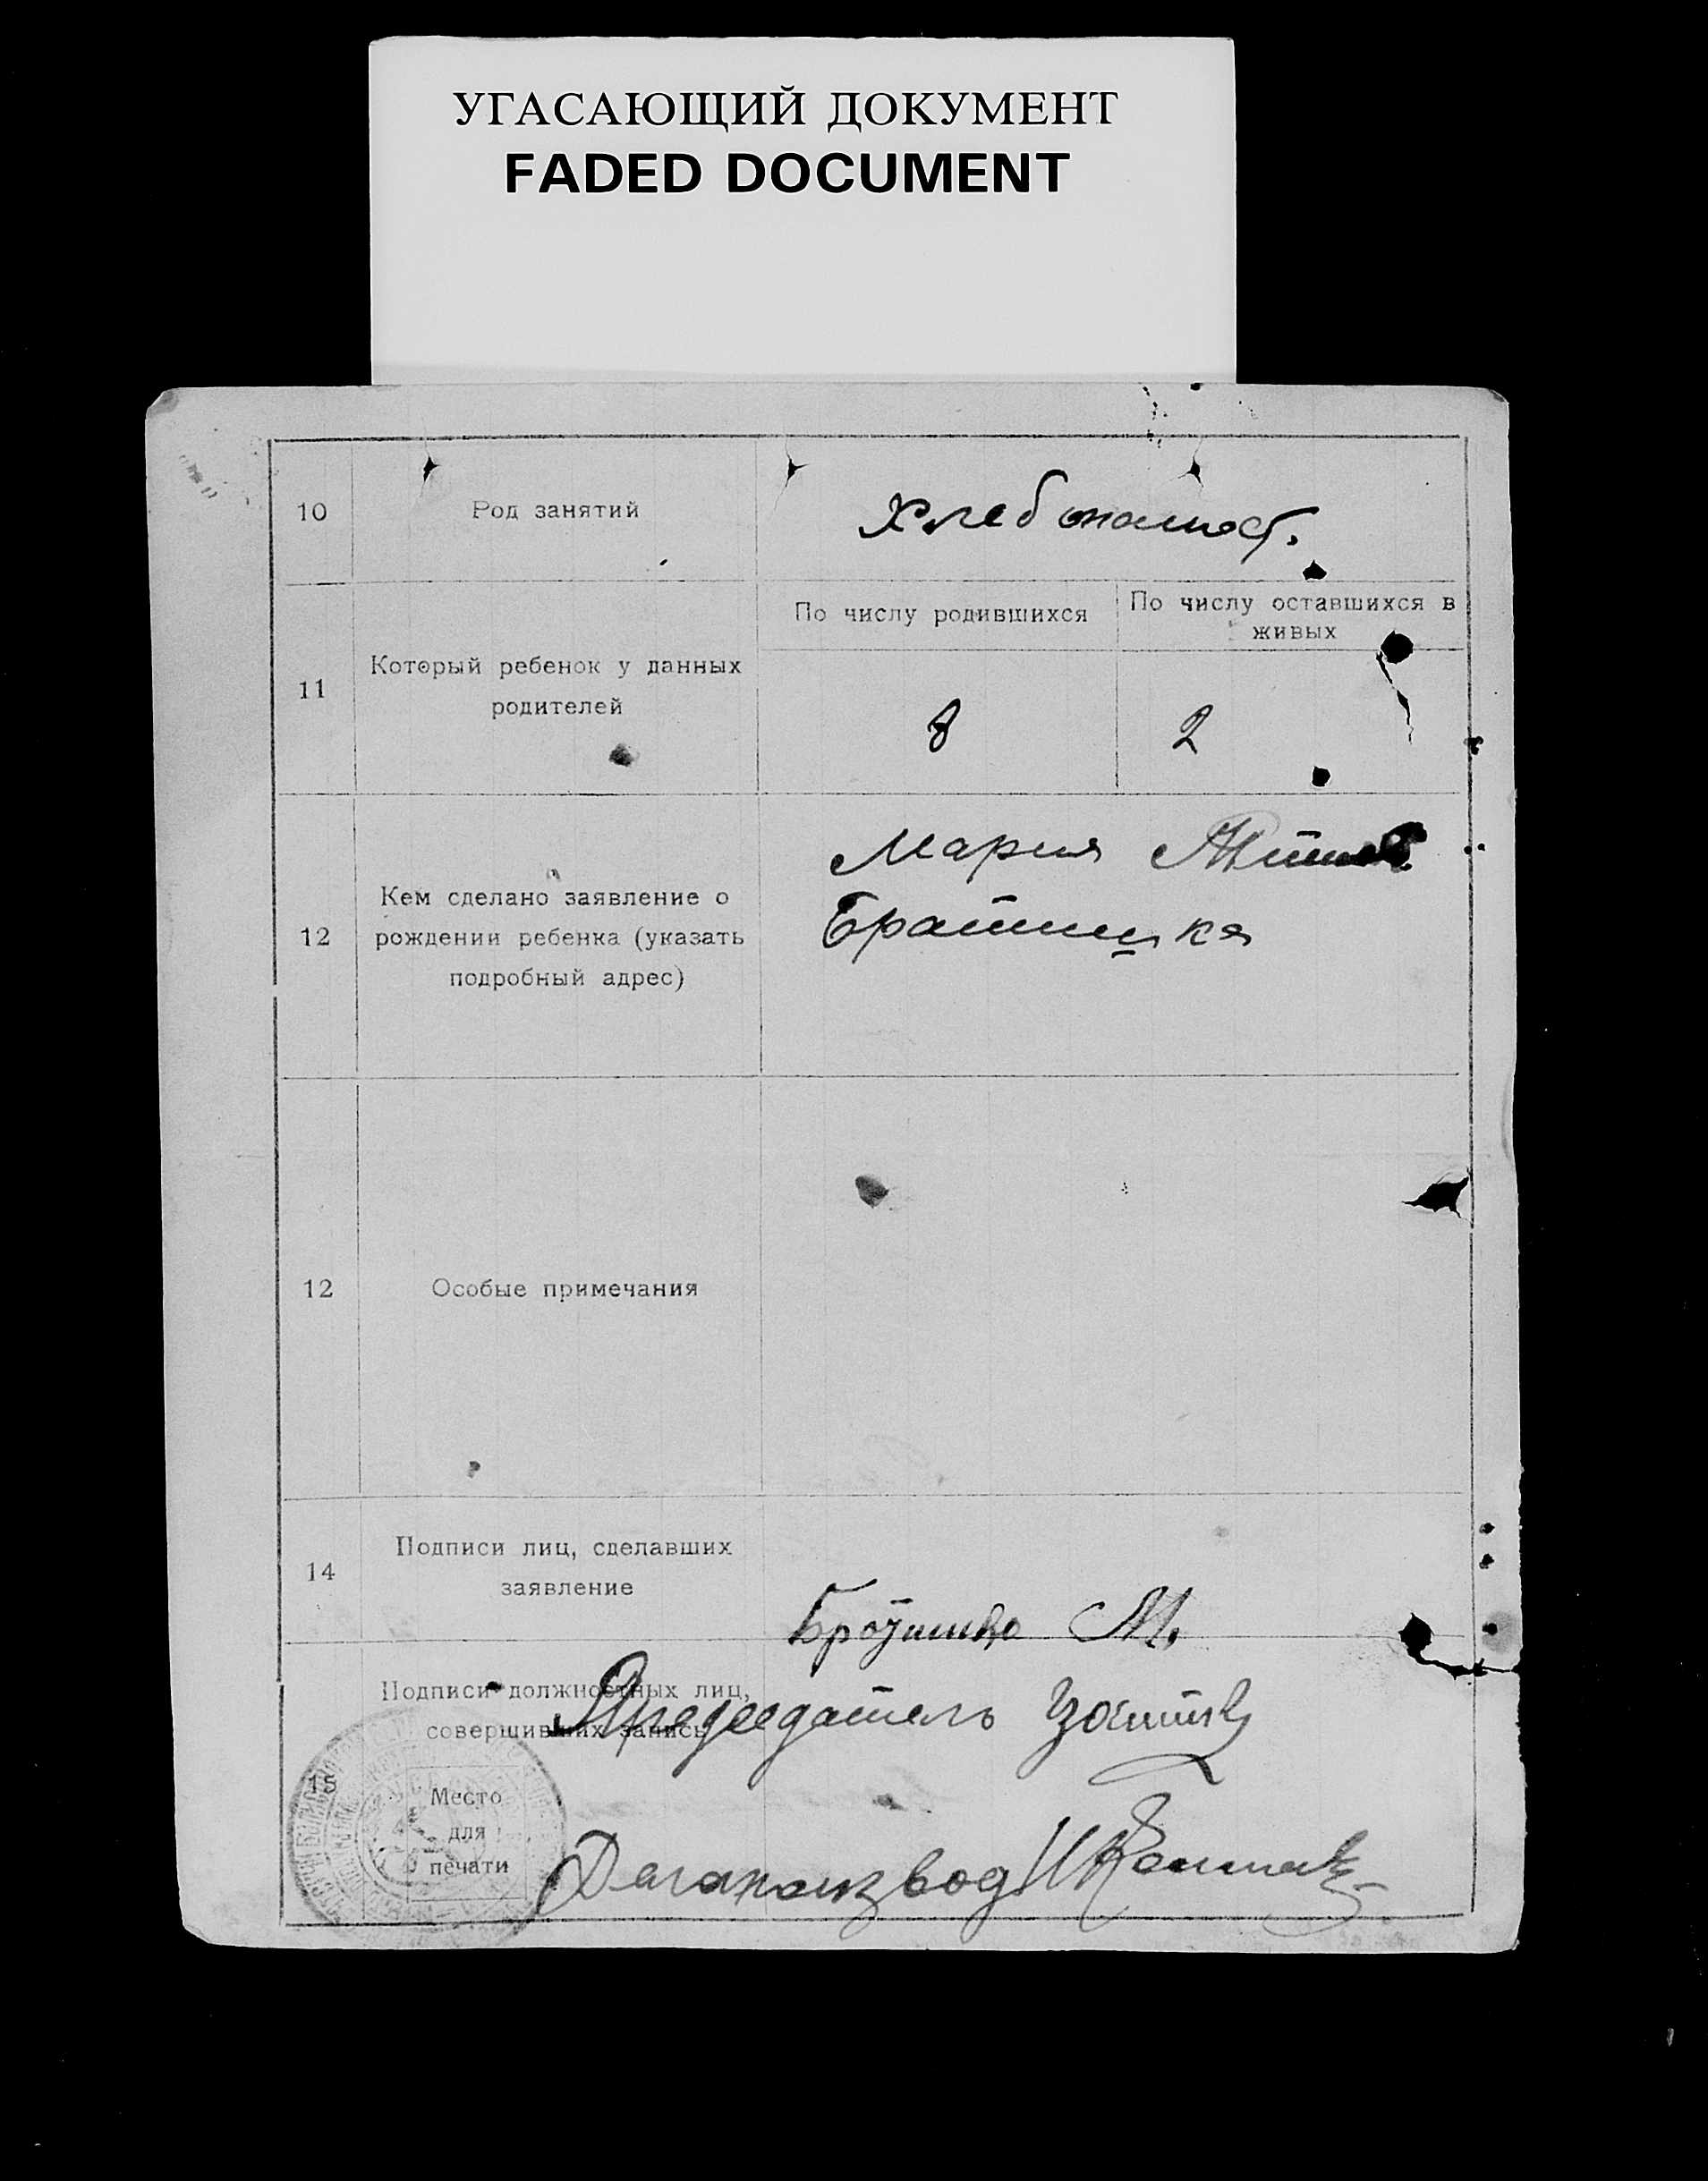 УГАСАЮЩИЙ ДОКУМЕНТ
FADED DOCUMENT
10
Род занятий
11
Который ребенок у данных
родителей
По числу родившихся
По числу оставшихся в
живых
8
2
12
Кем сделано заявление о
рождении ребенка (указать
подробный адрес)
Мария
12
Особые примечания
14
Подписи лиц, сделавших
заявление
М.
15
Подписи должностных лиц,
совершивших запись
Председатель
Место
для
печати